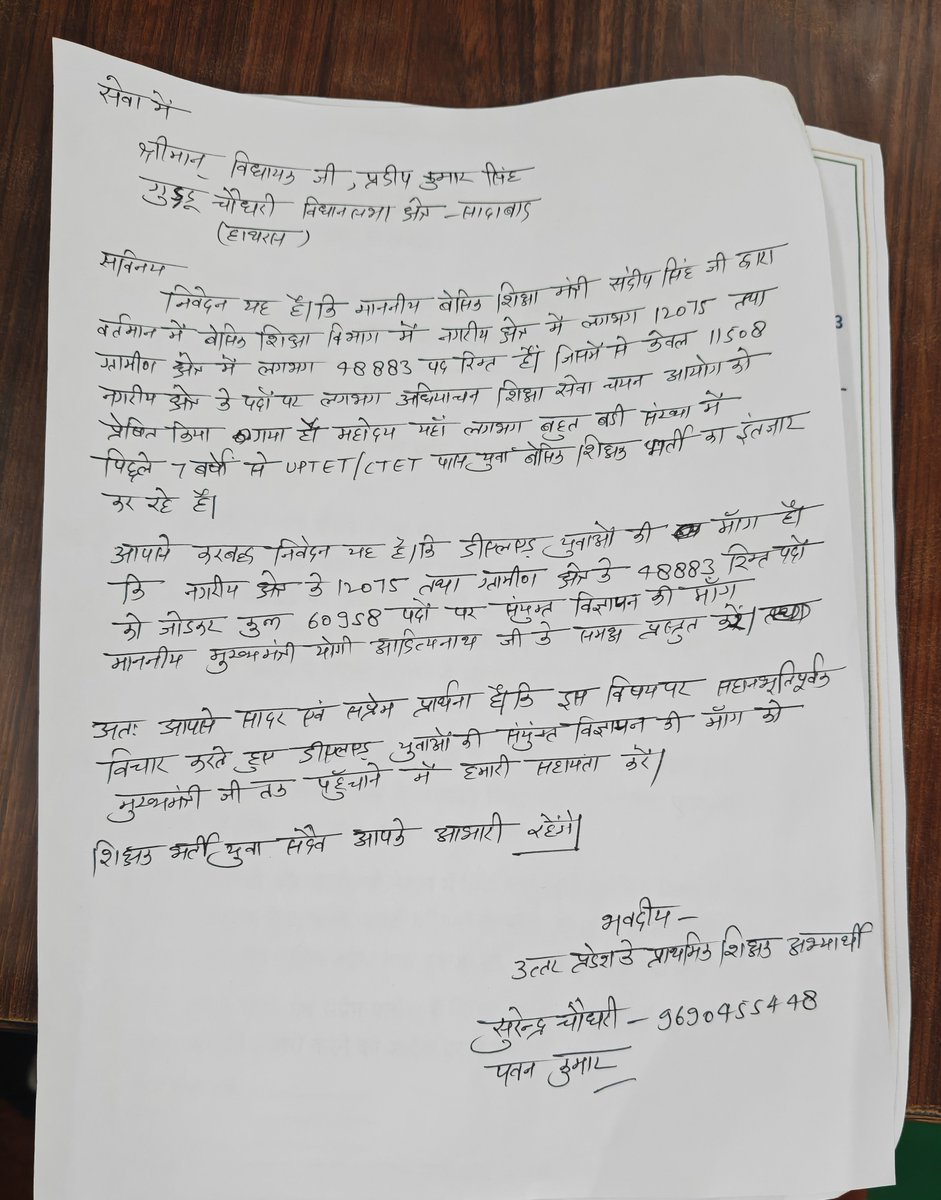 सेवा में
श्रीमान् विधायक जी, प्रदीप कुमार सिंह
गुड्डू चौधरी विधानसभा क्षेत्र - सादाबाद
(हाथरस)
सविनय
निवेदन यह है। कि माननीय बेसिक शिक्षा मंत्री संदीप सिंह जी द्वारा
वर्तमान में बेसिक शिक्षा विभाग में नगरीय क्षेत्र में लगभग 12075 तथा
ग्रामीण क्षेत्र में लगभग 48883 पद रिक्त हैं। जिसमें से केवल 11508
नगरीय क्षेत्र के पदों पर लगभग अधियाचन शिक्षा सेवा चयन आयोग को
प्रेषित किया गया है। महोदय यहाँ लगभग बहुत बडी संख्या में
पिछले 7 वर्षों से UPTET/CTET पास युवा बेसिक शिक्षक भर्ती का इंतजार
कर रहे है।
आपसे करबद्ध निवेदन यह है। कि डीएलएड युवाओं की माँग है।
कि नगरीय क्षेत्र के 12075 तथा ग्रामीण क्षेत्र के 48883 रिक्त पदों
को जोडकर कुल 60958 पदों पर संयुक्त विज्ञापन की माँग
माननीय मुख्यमंत्री योगी आदित्यनाथ जी के समक्ष प्रस्तुत करें।
अतः आपसे सादर एवं सप्रेम प्रार्थना है। कि इस विषय पर सहानभूतिपूर्वक
विचार करते हुए डीएलएड युवाओं की संयुक्त विज्ञापन की माँग को
मुख्यमंत्री जी तक पहुँचाने में हमारी सहायता करें।
शिक्षक भर्ती युवा सदैव आपके आभारी रहेंगे।
भवदीय -
उत्तर प्रदेश के प्राथमिक शिक्षक अभ्यार्थी
सुरेन्द्र चौधरी - 9690455448
पवन कुमार
3